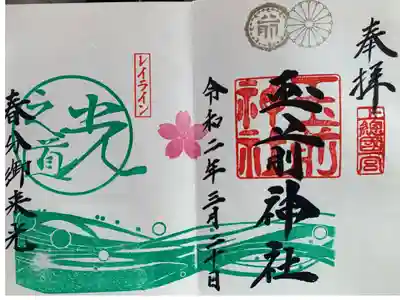 奉拝
上總一宮
前
玉前神社
玉前神社
令和二年三月二十日
レイライン
光之道
春分御来光